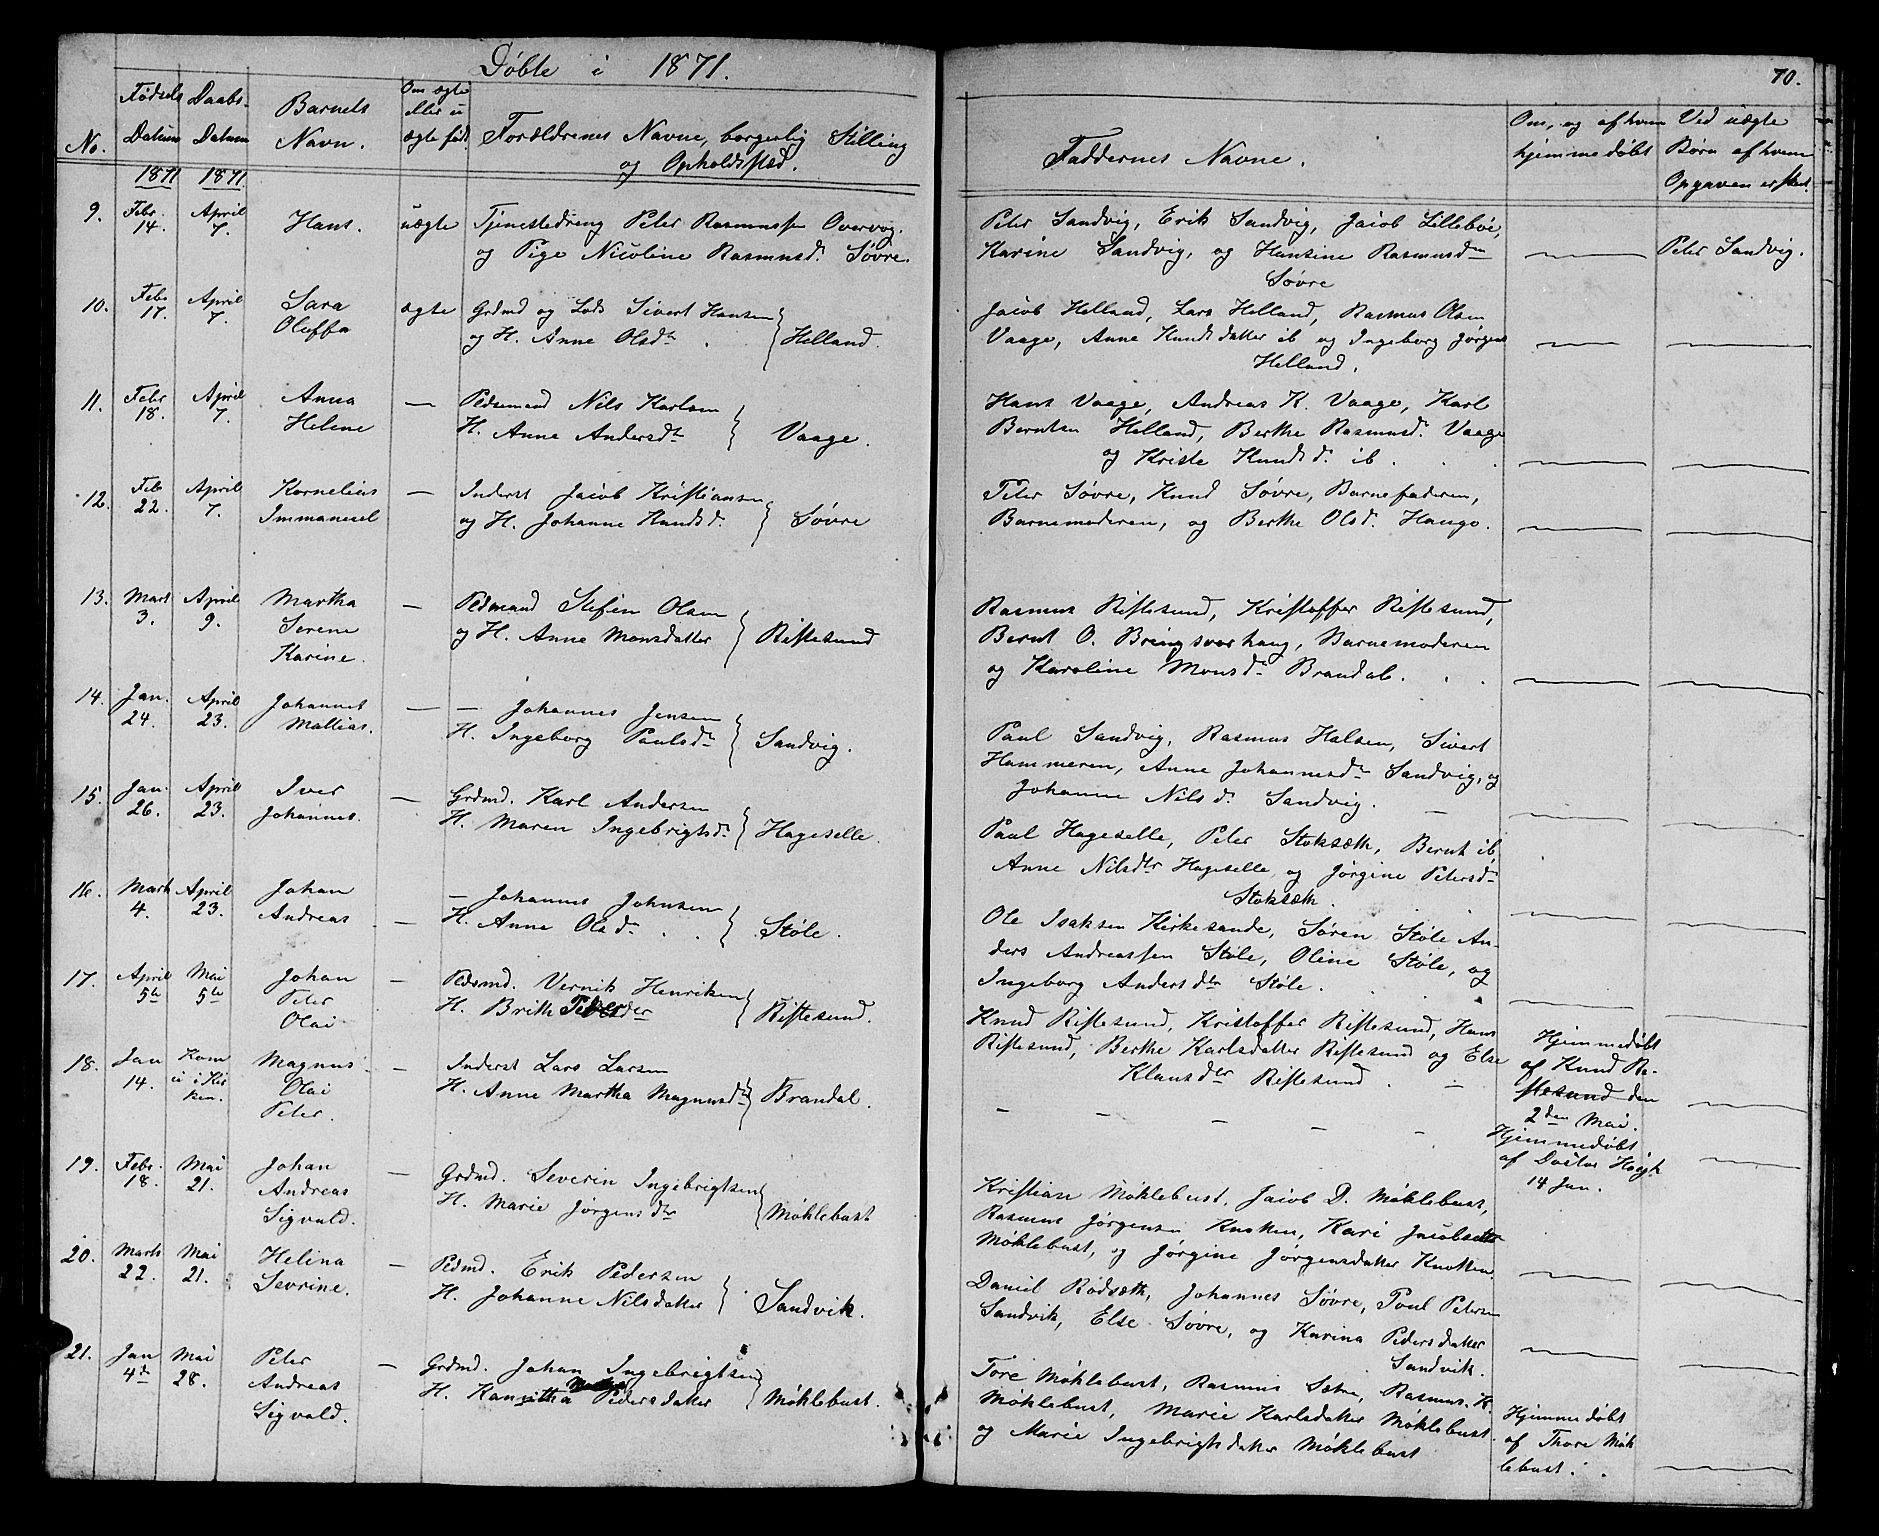 Døbte i 1871.
70.
No.
Fødsels Datum
Daabs- Datum
Barnets Navn.
Om ægte eller uægte født
Forældrenes Navne, borgerlig Stilling og Opholdssted.
Faddernes Navne.
Om, og af hvem hjemmedøbt
Ved uægte Børn af hvem Opgaven er skeet
1871 1871
9. Febr. 14. April 7. Hans. uægte Tjenestedreng Peter Rasmussen
og Pige Nicoline Rasmusd. Søvre.
Peter Sandvig, Erik Sandvig, Jacob Lillebøe,
Karine Sandvig, og Hansine Rasmusdn
Søvre
Peter Sandvig.
10. Febr 17. April 7. Sara
Oluffa
ægte Grdmd og Lods Sivert Hansen
og H. Anne Olsdtr. Helland.
Jacob Helland, Lars Helland, Rasmus Olsen
Vaage, Anne Knudsdatter ib og Ingeborg Jørgens
Helland.
11. Febr 18. April 7. Anna
Helene
— Pedsmand Nils Karlsen
H. Anne Andersdtr Vaage.
Hans Vaage, Andreas K. Vaage, Karl
Berntsen Helland, Berthe Rasmusd. Vaage
og Kriste Knudsd. ib.
12. Feb 22. April 7. Kornelius
Immanuel
— Inderst Jacob Kristiansen
og H. Johanne Knudsd. Søvre
Peter Søvre, Knud Søvre, Barnefaderen,
Barnemoderen, og Berthe Olsd. Hauge.
13. Mart 3. April 9. Martha
Serene
Karine.
— Pedmand Stefen Olsen
og H. Anne Monsdatter Riftesund
Rasmus Riftesund, Kristoffer Riftesund,
Bernt O. Bringsvorhaug, Barnemoderen
og Karoline Monsd. Brandal.
14. Jan. 24. April 23. Johannes
Mattias.
— — Johannes Jensen
H. Ingeborg Paulsdtr Sandvig.
Paul Sandvig, Rasmus Halsen, Sivert
Hammeren, Anne Johannesdtr Sandvig, og
Johanne Nilsd. Sandvig.
15. Jan. 26. April 23. Iver
Johannes.
— Grdmd. Karl Andersen
H. Maren Ingebrigtsd. Hageselle.
Paul Hageselle, Peter Stoksæth, Bernt ib,
Anne Nilsdtr Hageselle, og Jørgine Petersdtr
Stoksæth.
16. Mart 4. April 23. Johan
Andreas
— — Johannes Johnsen
H. Anne Olsd. Støle.
Ole Isaksen Kirkesande, Søren Støle An-
ders Andreassen Støle, Oline Støle, og
Ingeborg Andersdtr Støle.
17. April 5te Mai 5te Johan
Peter
Olai
— Pedsmd. Vernik Henriksen
H. Brithe Pedersder Riftesund.
Knud Riftesund, Kristoffer Riftesund, Hans
Riftesund, Berthe Karlsdatter Riftesund og Else
Klausder Riftesund.
Hjemmedøbt
af Knud Ri-
ftesund den
2den Mai.
18. Jan 14. Kom ei i Kirken. Magnus
Olai
Peter.
— Inderst Lars Larsen
H. Anne Martha Magnusdtr Brandal.
— — — — —
Hjemmedøbt
af Doctor Høegh
14 Jan.
19. Febr. 18. Mai 21. Johan
Andreas
Sigvald.
— Grdmd. Severin Ingebrigtsen
H. Marie Jørgensdtr Møklebust
Kristian Møklebust, Jacob D. Møklebust,
Rasmus Jørgensen Knotten, Kari Jacobsdtr
Møklebust, og Jørgine Jørgensdatter Knotten.
20. Marts 22. Mai 21. Helina
Sevrine.
— Pedmd. Erik Pedersen
H. Johanne Nilsdatter Sandvik.
Daniel Rødsæth, Johannes Søvre, Poul Petersen
Sandvik, Else Søvre, og Karina Pedersdatter
Sandvik.
21. Jan 4de Mai 28. Peter
Andreas
Sigvald.
— Grdmd. Johan Ingebrigtsen
H. Pedersdatter Møklebust.
Tore Møklebust, Rasmus Sætre, Rasmus K.
Møklebust, Marie Karlsdatter Møklebust.
og Marie Ingebrigtsdatter Møklebust
Hjemmedøbt
af Thore Møk
lebust.